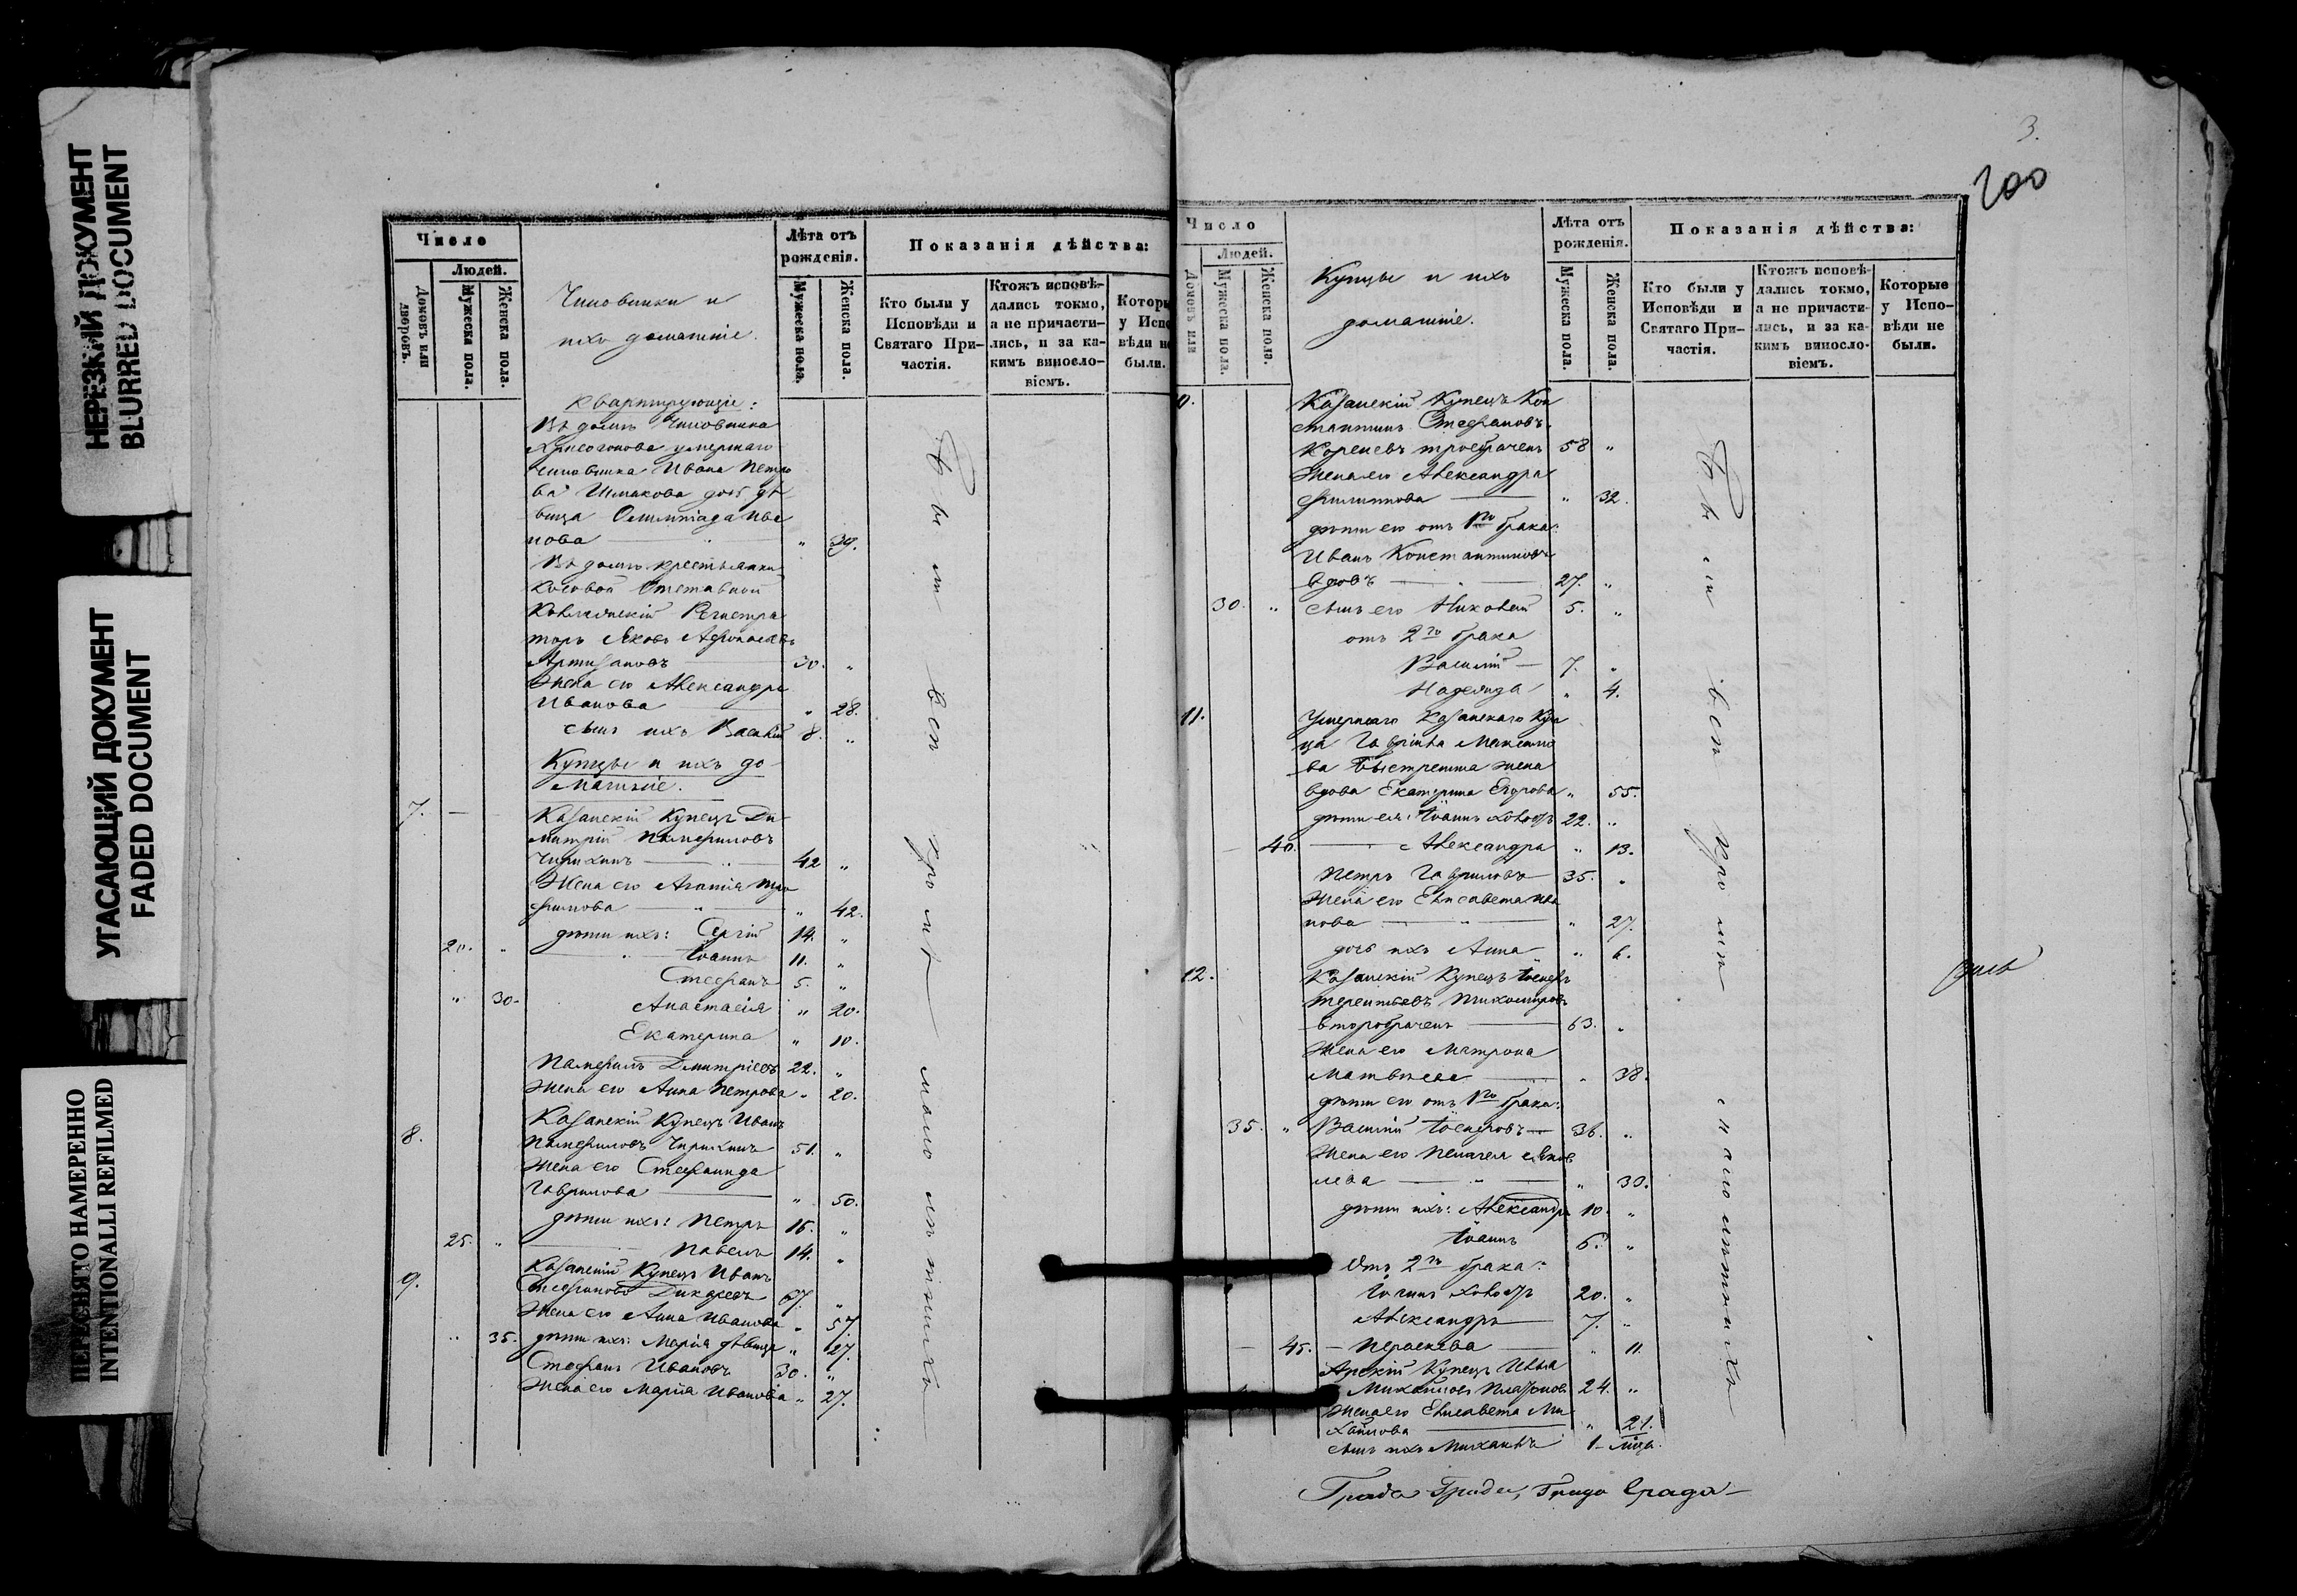 НЕРЕЗКИЙ ДОКУМЕНТ
BLURRED DOCUMENT
УГАСАЮЩИЙ ДОКУМЕНТ
FADED DOCUMENT
ПЕРЕСНЯТО НАМЕРЕННО
INTENTIONALLI REFILMED
Число
Людей.
Домовъ или дворовъ.
Мужеска пола.
Женска пола.
Чиновники и
ихъ домашніе.
Лѣта отъ рожденія.
Мужеска пола.
Женска пола.
Показанія дѣйства:
Кто были у Исповѣди и Святаго Причастія.
Ктожъ исповѣдались токмо, а не причастились, и за какимъ винословіемъ.
Которы
у Испо
вѣди не
были.
Квартирующіе:
Въ домѣ Чиновника
Хрисогонова умершаго
чиновника Ивана Петро
ва Шмакова дочь дѣ
вица Олимпіада Ива
нова " 39.
Въ домѣ крестьянки
Косовой Отставной
Коллежскій Регистра
торъ Яковъ
30. "
Жена его Александра
Иванова " 28.
сынъ ихъ Василій 8. "
Купцы и ихъ до
машніе.
7. Казанскій Купецъ Ди
митрій Памфиловъ
Чирихинъ 42 "
Жена его Агапія Тро
фимова " 42.
20. " дѣти ихъ: Сергій 14. "
Іоаннъ 11. "
Стефанъ 5. "
" 30. Анастасія " 20.
Екатерина " 10.
Памфилъ Димитріевъ 22. "
Жена его Анна Петрова " 20.
8. Казанскій Купецъ Иванъ
Памфиловъ Чирихинъ 51. "
Жена его Стефанида
Гаврилова " 50.
дѣти ихъ: Петръ 16. "
25. " Павелъ 14. "
9. Казанскій Купецъ Иванъ
Стефановъ Дикаревъ 67. "
Жена его Анна Иванова " 57.
" 35. дѣти ихъ: Марія дѣвица " 27.
Стефанъ Ивановъ 30. "
Жена его Марія Иванова " 27.
Были вси кромѣ малолѣтнихъ
3.
200
Число
Людей.
Домовъ или
Мужеска пола.
Женска пола.
Купцы и ихъ
домашніе.
Лѣта отъ рожденія.
Мужеска пола.
Женска пола.
Показанія дѣйства:
Кто были у Исповѣди и Святаго Причастія.
Ктожъ исповѣдались токмо, а не причастились, и за какимъ винословіемъ.
Которые у Исповѣди не были.
0. Казанскій Купецъ Кон
стантинъ Стефановъ
Кореневъ троебраченъ 58 "
Жена его Александра
Филиппова " 32.
дѣти его отъ 1го брака:
Иванъ Константиновъ
вдовъ 27. "
30. " сынъ его Николай 5. "
отъ 2го брака
Василій 7. "
Надежда " 4.
11. Умершаго Казанскаго Куп
ца Гавріила Максимо
ва Быстрецина жена
вдова Екатерина Егорова " 55.
дѣти ея: Іоаннъ холостъ 22. "
40. Александра " 13.
Петръ Гавриловъ 35. "
Жена его Елисавета Ива
нова " 27.
дочь ихъ Анна " 6.
12. Казанскій Купецъ Іосифъ
Терентьевъ
второбраченъ 63. "
Жена его Матрона
Матвѣева " 38.
дѣти его отъ 1го брака:
35. " Василій Іосифовъ 36. "
Жена его Пелагея Яков
лева " 30.
дѣти ихъ: Александръ 10. "
Іоаннъ 6. "
Отъ 2го брака:
Іоаннъ холостъ 20. "
Александръ 7. "
45. Параскева " 11.
Арскій Купецъ Илья
Михайловъ Платоновъ 24. "
Жена его Елисавета Ми
хайлова " 21.
сынъ ихъ Михаилъ 1
Были вси кромѣ малолѣтнихъ